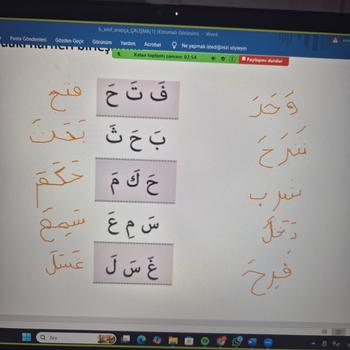 6_sinif_arapça_ÇALIŞMA(1) (Korumalı Görünüm) - Word
Posta Gönderileri Gözden Geçir Görünüm Yardım Acrobat Ne yapmak istediğinizi söyleyin
Kalan toplantı zamanı: 02:54 Paylaşımı durdur
فتح فَ تَ حَ وَجَدَ
بَحَثَ بَ حَ ثَ شَرَحَ
حَكَمَ حَ كَ مَ شرب
سَمِعَ سَ مِ عَ دَخَلَ
غَسَلَ غَ سَ لَ فَرِحَ
Ara